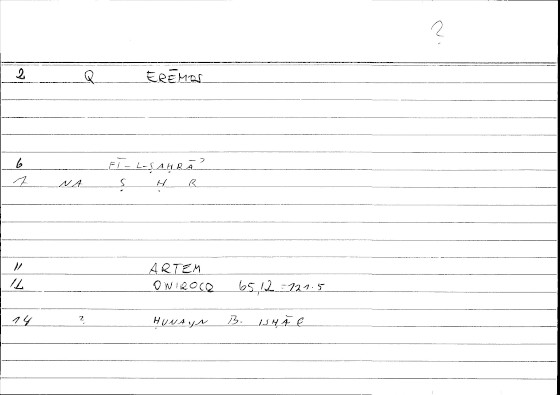 ?
2 Q ERĒMOS
6 FĪ-L-ṢAḤRĀʾ
7 NA Ṣ Ḥ R
11 ARTEM
12 ONIROCQ 65,12 = 121.5
14 ? ḤUNAYN B. ISḤĀQ